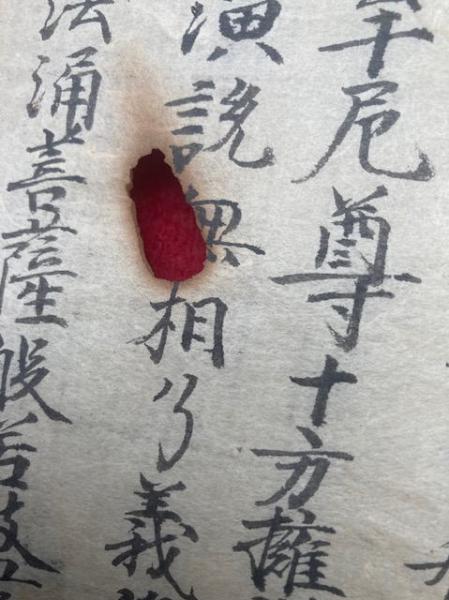 牟尼尊十方擁
演説無相了義
法涌菩薩般若